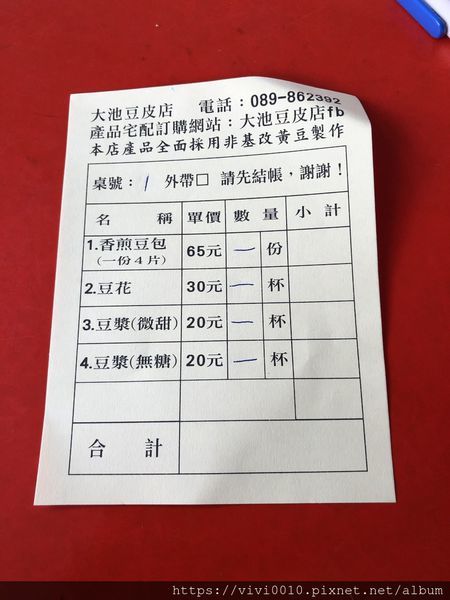 大池豆皮店 電話：089-862392
產品宅配訂購網站：大池豆皮店fb
本店產品全面採用非基改黃豆製作
桌號： 1 外帶□ 請先結帳，謝謝！
名稱 單價 數量 小計
1.香煎豆包 65元 一 份
(一份4片)
2.豆花 30元 一 杯
3.豆漿(微甜) 20元 一 杯
4.豆漿(無糖) 20元 一 杯
合計
https://vivi0010.pixnet.net/album